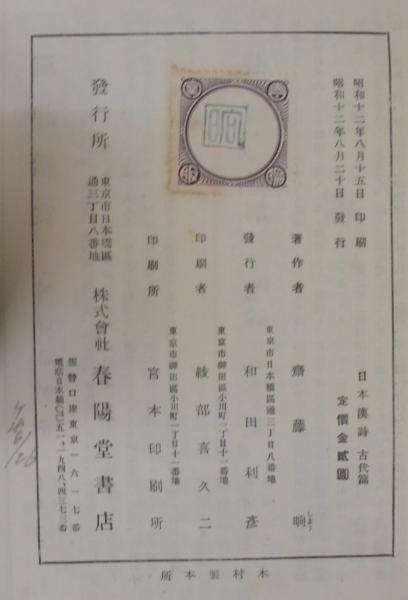 昭和十二年八月十五日 印刷
昭和十二年八月二十日 發行
日本漢詩 古代篇
定價金貳圓
著作者 齋藤晌
しよう
東京市日本橋區通三丁目八番地
發行者 和田利彥
東京市神田區小川町一丁目十一番地
印刷者 綾部喜久二
東京市神田區小川町一丁目十一番地
印刷所 宮本印刷所
發行所
東京市日本橋區
通三丁目八番地
株式會社 春陽堂書店
振替口座東京一六一七番
電話日本橋〇〇五一、一九四八、四三七三番
木村製本所